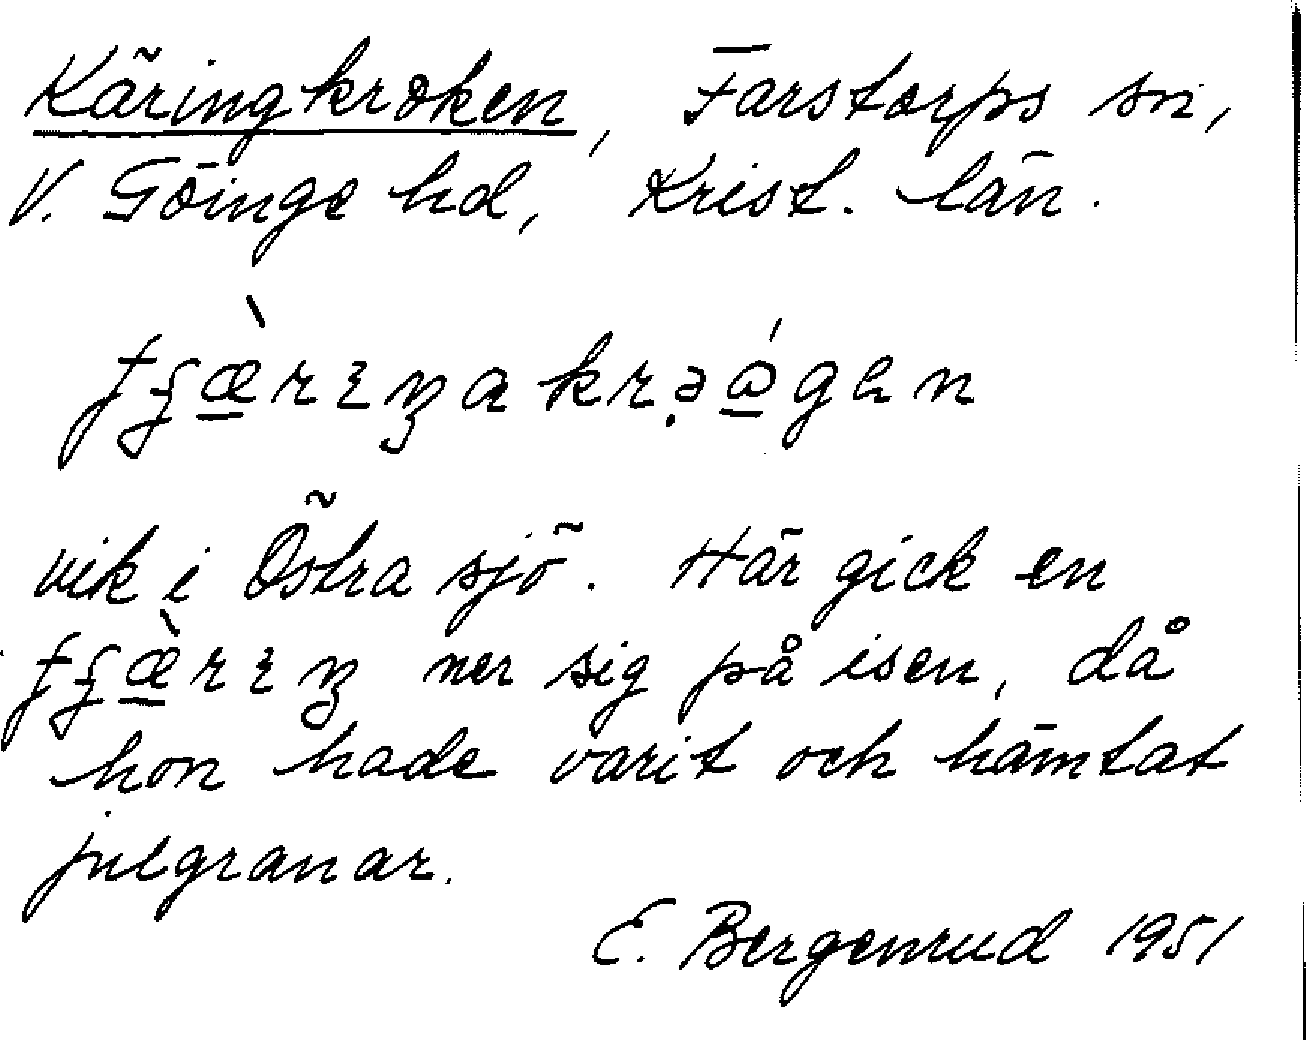 Käringkroken, Farstorps sn,
V. Göinge hd, Krist. län.
vik i Östra sjö. Här gick en
ner sig på isen, då
hon hade varit och hämtat
julgranar.
E. Bergenrud 1951